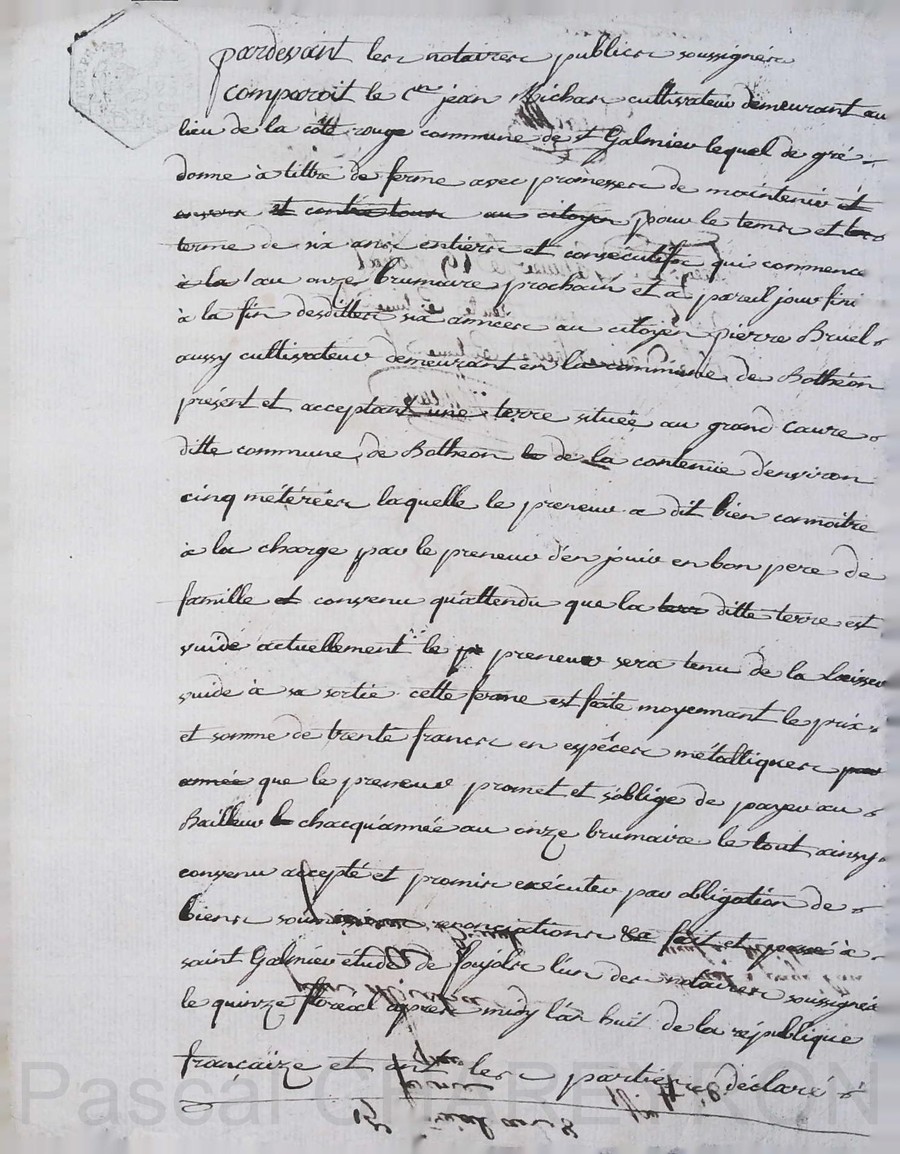 pardevant les notaires publics soussignés
comparoit le c.en jean Michas cultivateur demeurant au
lieu de la côte rouge commune de st Galmier lequel de gré
donne à tittre de ferme avec promesses de maintenir et
et contre tous au citoyen pour le tems et
terme de six ans entiers et consecutifs qui commence
à la au onze brumaire prochain et a pareil jour fini
à la fin desdittes six annees au citoyen pierre Bruel
aussy cultivateur demeurant en la commune de Bothéon
présent et acceptant une terre située au grand caure
ditte commune de Botheon de la contenüe d'environ
cinq métérées laquelle le preneur a dit bien connoitre
à la charge par le preneur d'en jouir en bon pere de
famille et convenu qu'attendu que la ditte terre est
vuide actuellement le preneur sera tenu de la laisser
vuide à sa sortie cette ferme est faite moyennant le prix
et somme de trente francs en espéces métalliques par
année que le preneur promet et s'oblige de payer au
Bailleur chacqu'année au onze brumaire le tout ainsy
convenu accepté et promis exécuter par obligation de
biens soumissions renonciations fait et passé à
saint Galmier étude de foujols l'un des notaires soussignés
le quinze floreal après midy l'an huit de la république
francaize et ont les parties déclaré
Pascal CHAREYRON